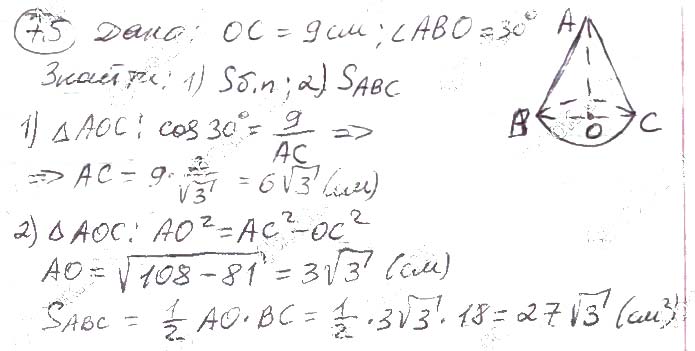 7.5 Дано: OC = 9 см; ∠ABO = 30°
Знайти: 1) Sб.п; 2) SABC
1) △AOC: cos 30° = 9/AC =>
=> AC = 9 · 2/√3 = 6√3 (см)
2) △AOC: AO² = AC² - OC²
AO = √(108 - 81) = 3√3 (см)
SABC = 1/2 AO · BC = 1/2 · 3√3 · 18 = 27√3 (см²)
A
B
O
C